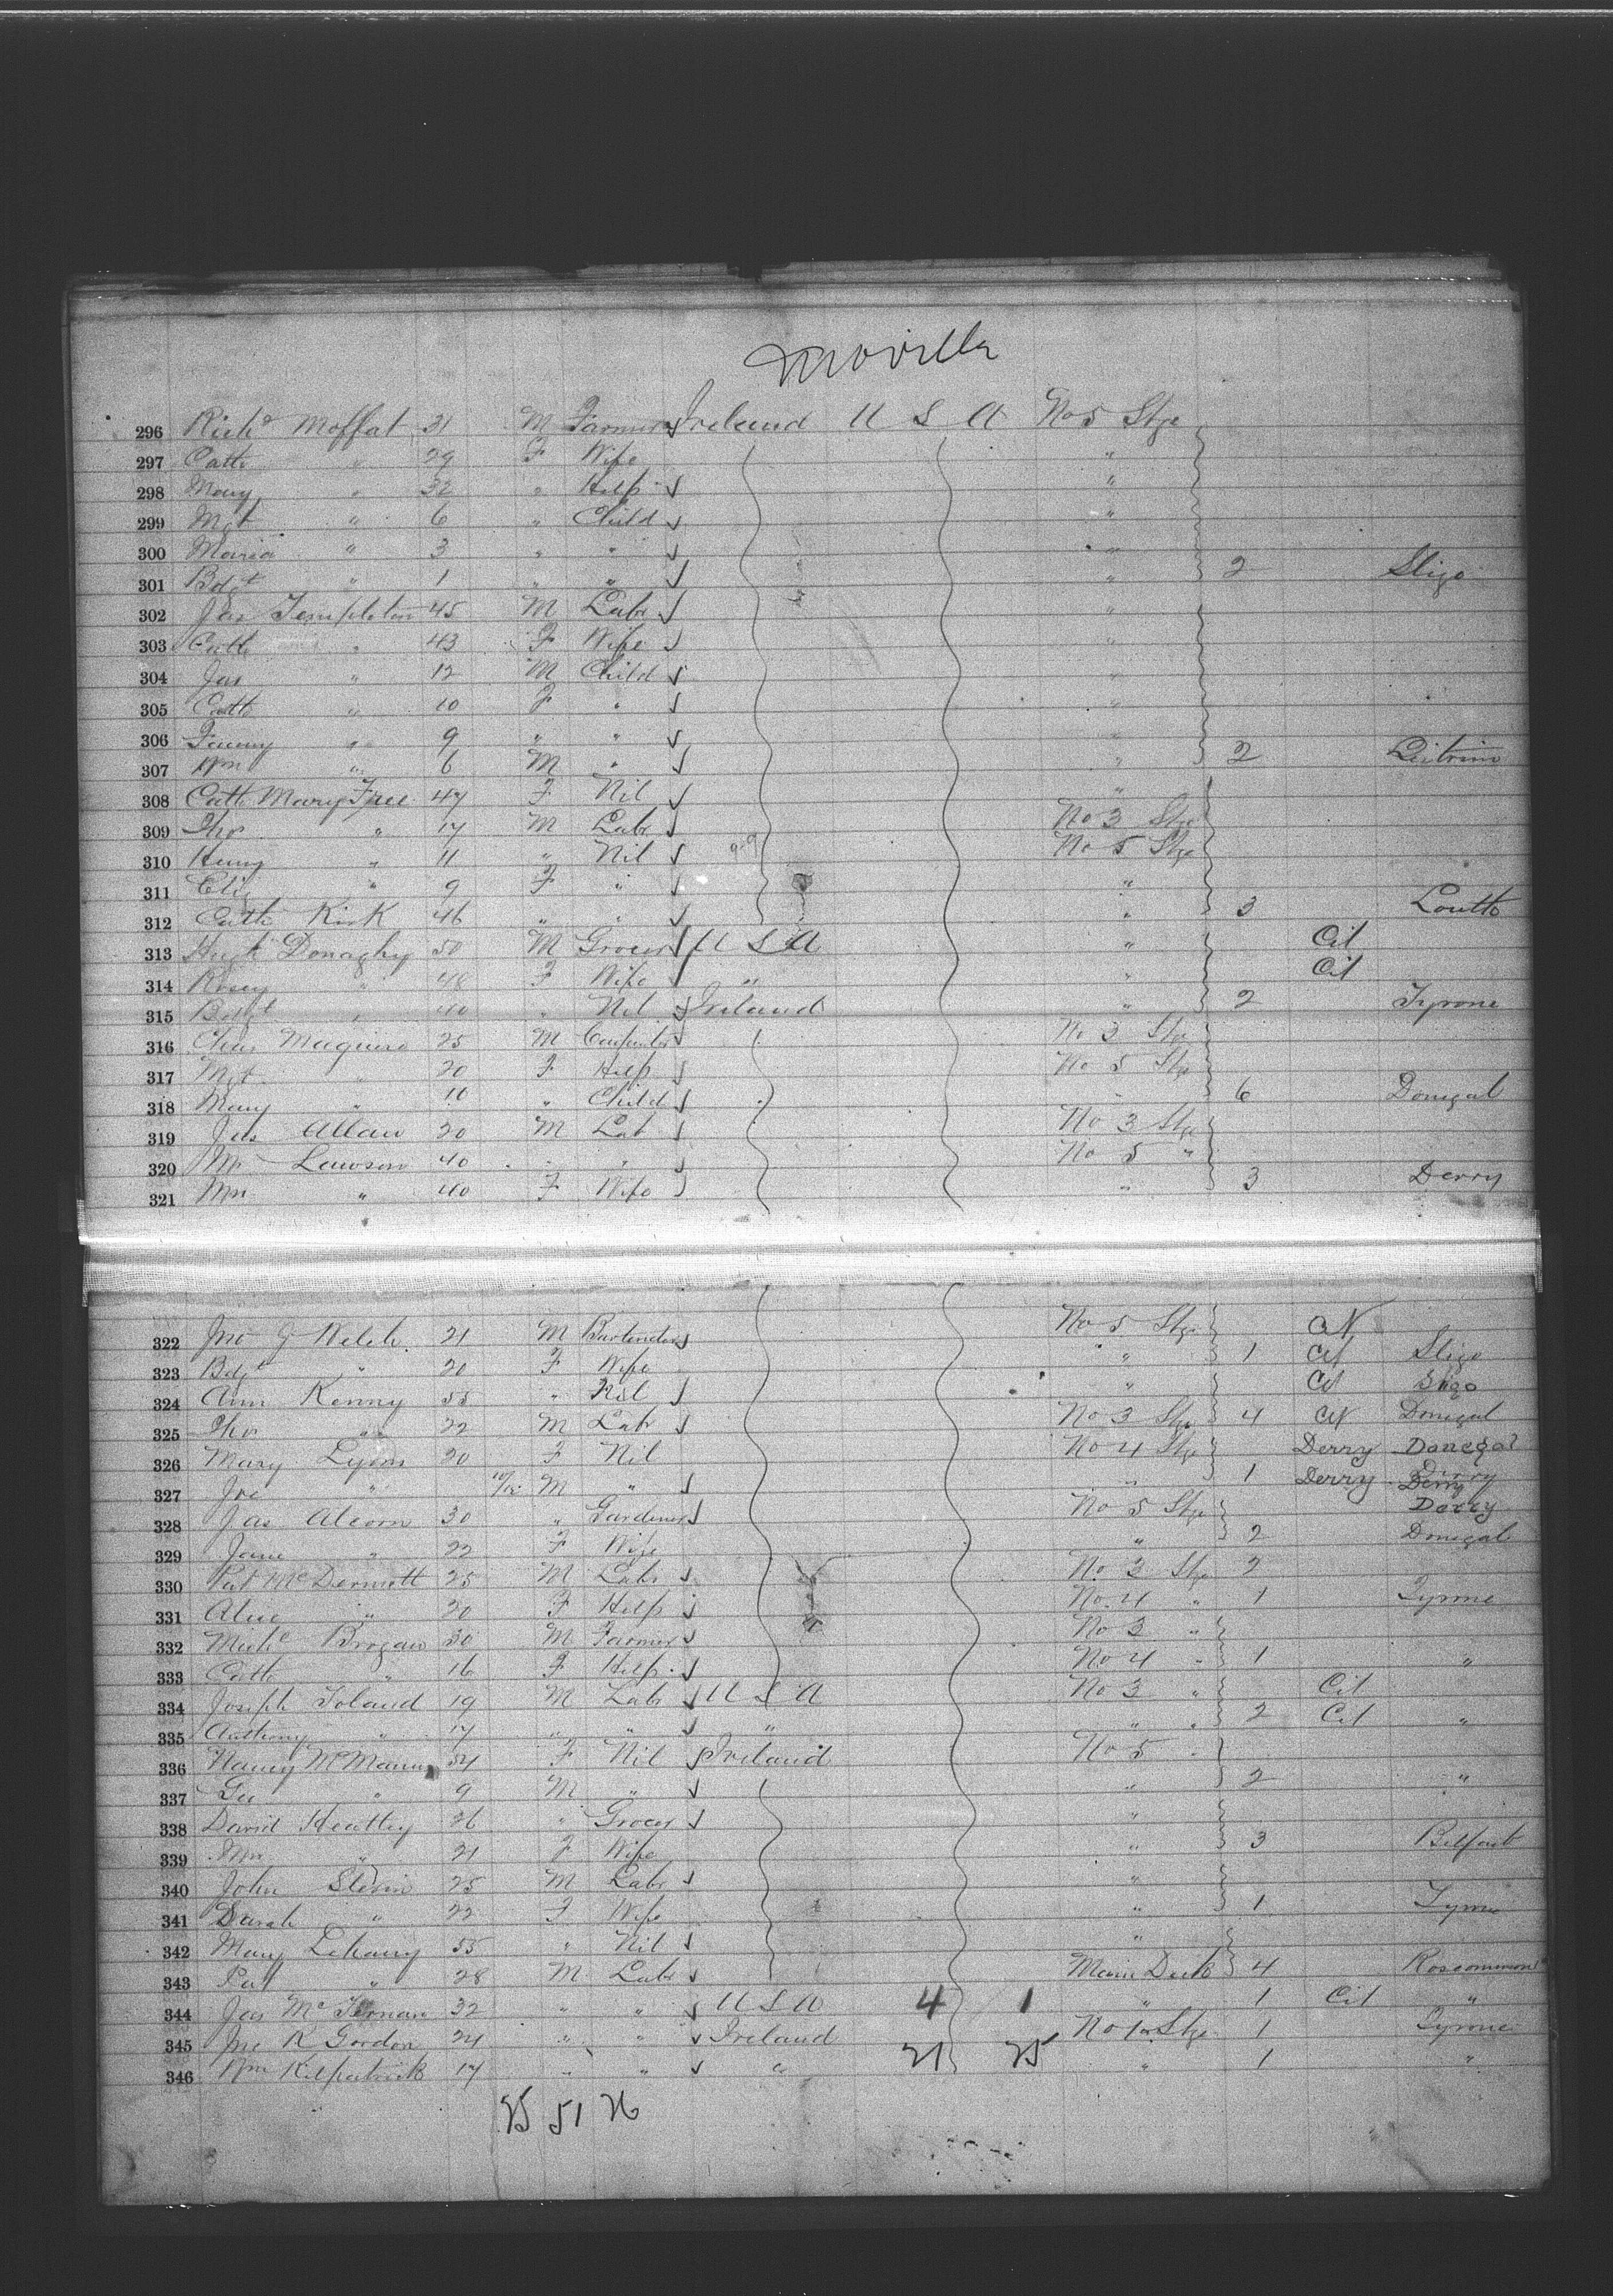 Movilla
296 Richd Moffat 31 M Farmer Ireland U S A No 5 Stge
297 Cath " 29 F Wife "
298 Mary " 32 " Help "
299 Mgt " 6 " Child "
300 Maria " 3 " " "
301 Bdgt " 1 " " " 2 Sligo
302 Jas Templeton 45 M Labr "
303 Cath " 43 F Wife "
304 Jas " 12 M Child "
305 Cath " 10 F " "
306 Fanny " 9 " " "
307 Wm " 6 M " " 2 Leitrim
308 Cath Mary Free 47 F Nil "
309 Tho " 17 M Labr No 3 Stge
310 Henry " 11 " Nil No 5 Stge
311 Eliz " 9 F " "
312 Cath Kirk 46 " " " 3 Louth
313 Hugh Donaghy 50 M Grocer U S A " Cit
314 Rosey " 48 F Wife " " Cit
315 Bdgt " 40 " Nil Ireland " 2 Tyrone
316 Chas Maguire 25 M Carpenter No 3 Stge
317 Mgt " 20 F Help No 5 Stge
318 Mary " 10 " Child " 6 Donegal
319 Jas Allan 20 M Lab No 3 Stge
320 Mr Lawson 40 " " No 5 "
321 Mrs " 40 F Wife " 3 Derry
322 Jno G Welch 21 M Bartender No 5 Stge Cit
323 Bdgt " 20 F Wife " 1 Cit Sligo
324 Ann Kenny 55 " Nil " Cit Sligo
325 Tho " 22 M Labr No 3 Stge 4 Cit Donegal
326 Mary Lyons 20 F Nil No 4 Stge Derry Donegal
327 Jno " 10/12 M " " 1 Derry Derry
328 Jas Alcorn 30 " Gardener No 5 Stge Derry
329 Jane " 22 F Wife " 2 Donegal
330 Pat McDermott 25 M Labr No 3 Stge 2
331 Alice " 20 F Help No 4 " 1 Tyrone
332 Michl Brogan 30 M Farmer No 3 "
333 Cath " 16 F Help No 4 " 1 "
334 Joseph Toland 19 M Labr U S A No 3 " Cit
335 Anthony " 17 " " " " " 2 Cit "
336 Nancy McManus 54 F Nil Ireland No 5 "
337 Geo " 9 M " " 2 "
338 David Heatley 26 " Grocer "
339 Mrs " 21 F Wife " 3 Belfast
340 John Slevin 25 M Labr "
341 Sarah " 22 F Wife " 1 Tyrone
342 Mary Lehany 55 " Nil "
343 Pat " 28 M Labr Main Deck 4 Roscommon
344 Jas McTernan 32 " " U S A 4 1 " 1 Cit "
345 Jno R Gordon 24 " " Ireland No 1 Stge 1 Tyrone
346 Wm Kilpatrick 17 " " " 21 25 " 1 "
25 51 26